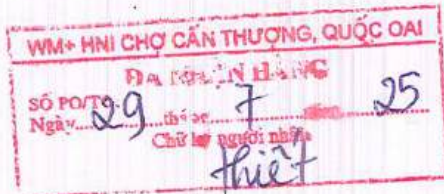 WM+ HNI CHỢ CẤN THƯỢNG, QUỐC OAI
ĐÃ NHẬN HÀNG
SỐ PO/TO
Ngày 29 tháng 7 năm 25
Chữ ký người nhận
thiết